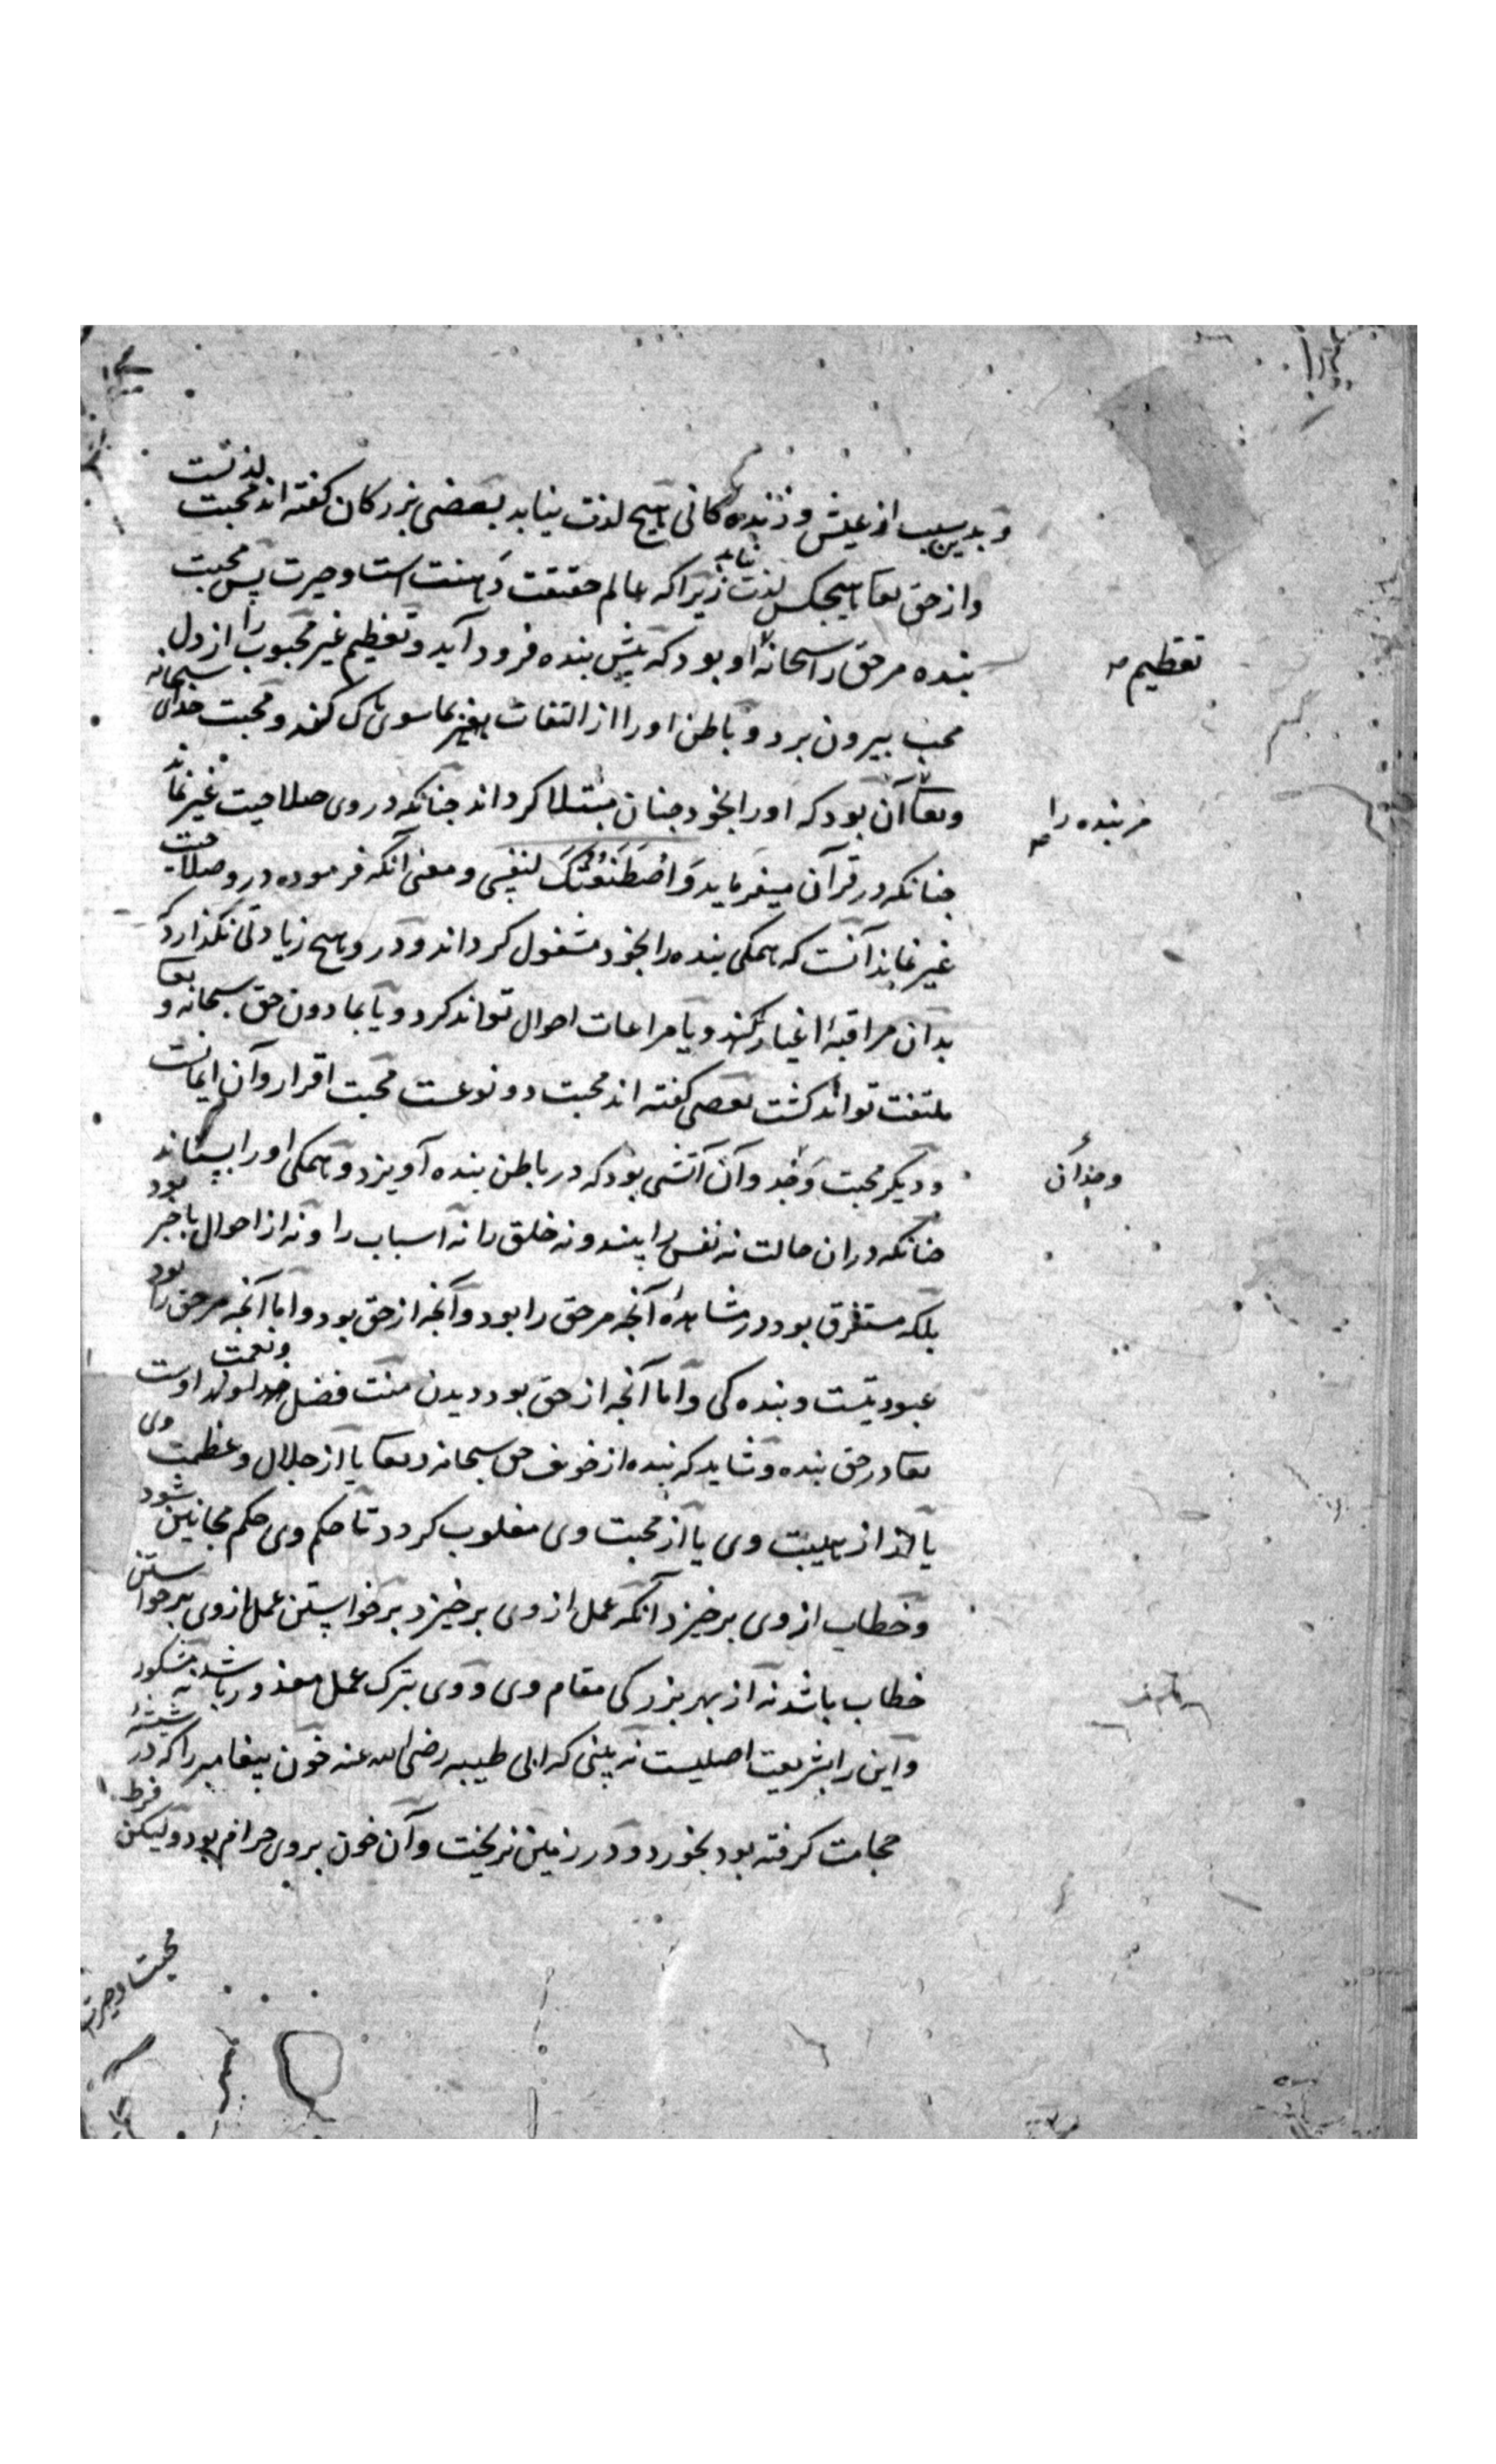 و بدین سبب از عیش و زنده کانی هیچ لذت نیابد بعضی بزرکان کفته اند محبت لذتست
و از حق تعا هیچکس لذت نیابد زیرا که عالم حقیقت دهشت است و حیرت پس محبت
بنده مر حق را سبحانه او بود که پیش بنده فرود آید و تعظیم غیر محبوب را از دل
تعظیم
محب بیرون برد و باطن او را از التفات بغیر بما سوی پاک کند و محبت خدای سبحانه
و تعا آن بود که او را بخود چنان مبتلا کرداند چنانکه در وی صلاحیت غیر نماند
مر بنده را
چنانکه در قرآن میفرماید وَاصْطَنَعْتُكَ لنفسی و معنی آنکه فرموده در و صلاحیت
غیر نماند آنست که همکی بنده را بخود مشغول کرداند و در و هیچ زیادتی نکذارد که
بدان مراقبهٔ اغیار کند و یا مراعات احوال تواند کرد و یا بما دون حق سبحانه و تعا
ملتفت تواند کشت بعضی کفته اند محبت دو نوعست محبت اقرار و آن ایمانست
و دیکر محبت وجد و آن آتشی بود که در باطن بنده آویزد و همکی او را بستاند
وجد آن
چنانکه در ان حالت نه نفس را بیند و نه خلق را نه اسباب را و نه از احوال با خبر بود
بلکه مستغرق بود در مشاهدهٔ آنچه مر حق را بود و آنچه از حق بود و اما آنچه مر حق را بود
عبودیتست و بنده کی و اما آنچه از حق بود دیدن منت فضل و نعمت اوست
تعا در حق بنده و شاید که بنده از خوف حق سبحانه و تعا یا از جلال و عظمت وی
یا از هیبت وی یا از محبت وی مغلوب کردد تا حکم وی حکم مجانین شود
و خطاب از وی برخیزد آنکه عمل از وی برخیزد برخواستن عمل از وی برخواستن
خطاب باشد نه از بهر بزرکی مقام وی و وی بترک عمل معذور باشد نه مشکور
و این را بشریعت اصلیست نه بینی که ابی طیبه رضی الله عنه خون پیغامبر را که در شیشهٔ
حجامت کرفته بود بخورد و در زمین نریخت و آن خون بروی حرام بود ولیکن فرط
محبت و حیرت